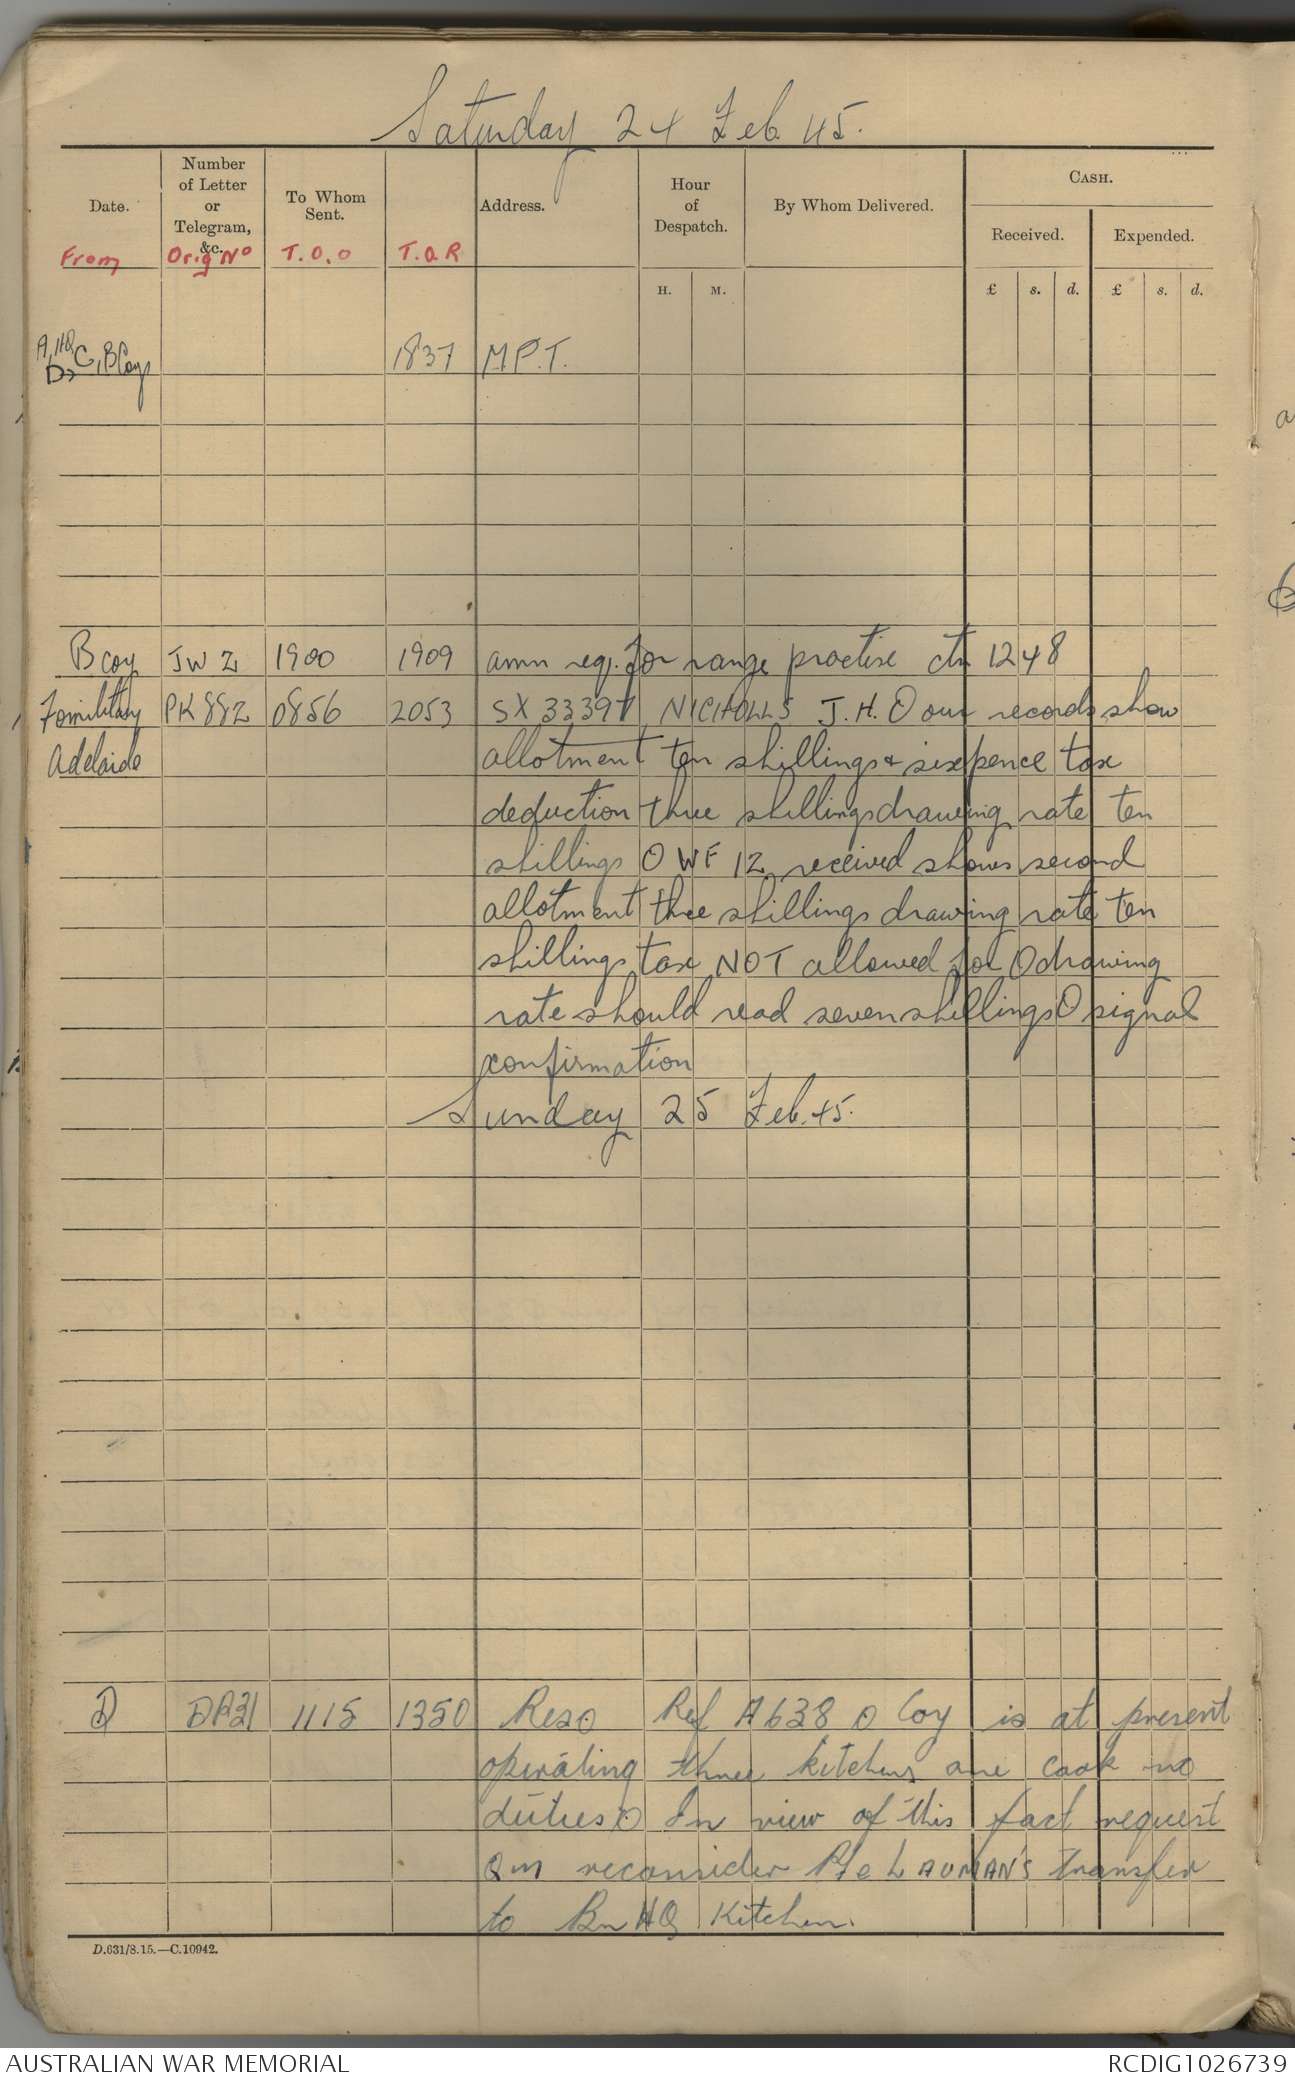 Saturday 24 Feb 45.
Date.
Number of Letter or Telegram, &c.
To Whom Sent.
Address.
Hour of Despatch.
By Whom Delivered.
CASH.
Received.
Expended.
From Orig No T.O.O T.O.R
H. M. £ s. d. £ s. d.
A, HQ, C, B Coys 1837 M.P.T.
D,
B coy JW 2 1900 1909 amn req. for range practise 1248
Fomilitary PK882 0856 2053 SX 33397 NICHOLLS J.H. O our records show
Adelaide allotment ten shillings & sixpence tax
deduction three shillings drawing rate ten
shillings O WF 12 received shows second
allotment three shillings drawing rate ten
shillings tax NOT allowed for O drawing
rate should read seven shillings O signal
confirmation
Sunday 25 Feb. 45.
D DA31 1115 1350 Res O Ref A638 O Coy is at present
operating three kitchens one cook no
duties O In view of this fact request
Qm reconsider Pte LAUMAN'S transfer
to Bn HQ Kitchen.
D.631/8.15.—C.10942.
AUSTRALIAN WAR MEMORIAL RCDIG1026739